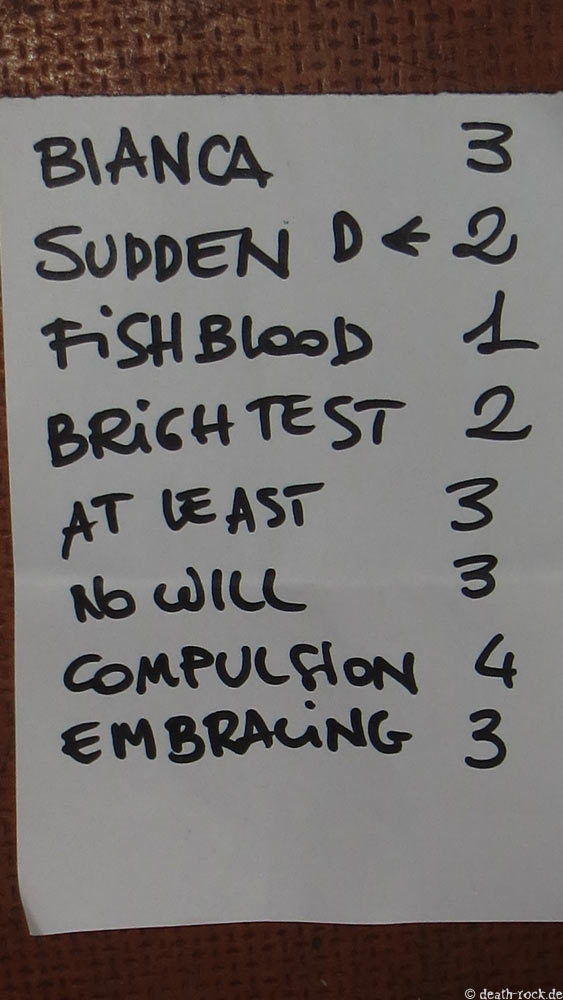 BIANCA 3
SUDDEN D ← 2
FiSHBLOOD 1
BRiGHTEST 2
AT LEAST 3
NO WILL 3
COMPULSION 4
EMBRACiNG 3
© death-rock.de